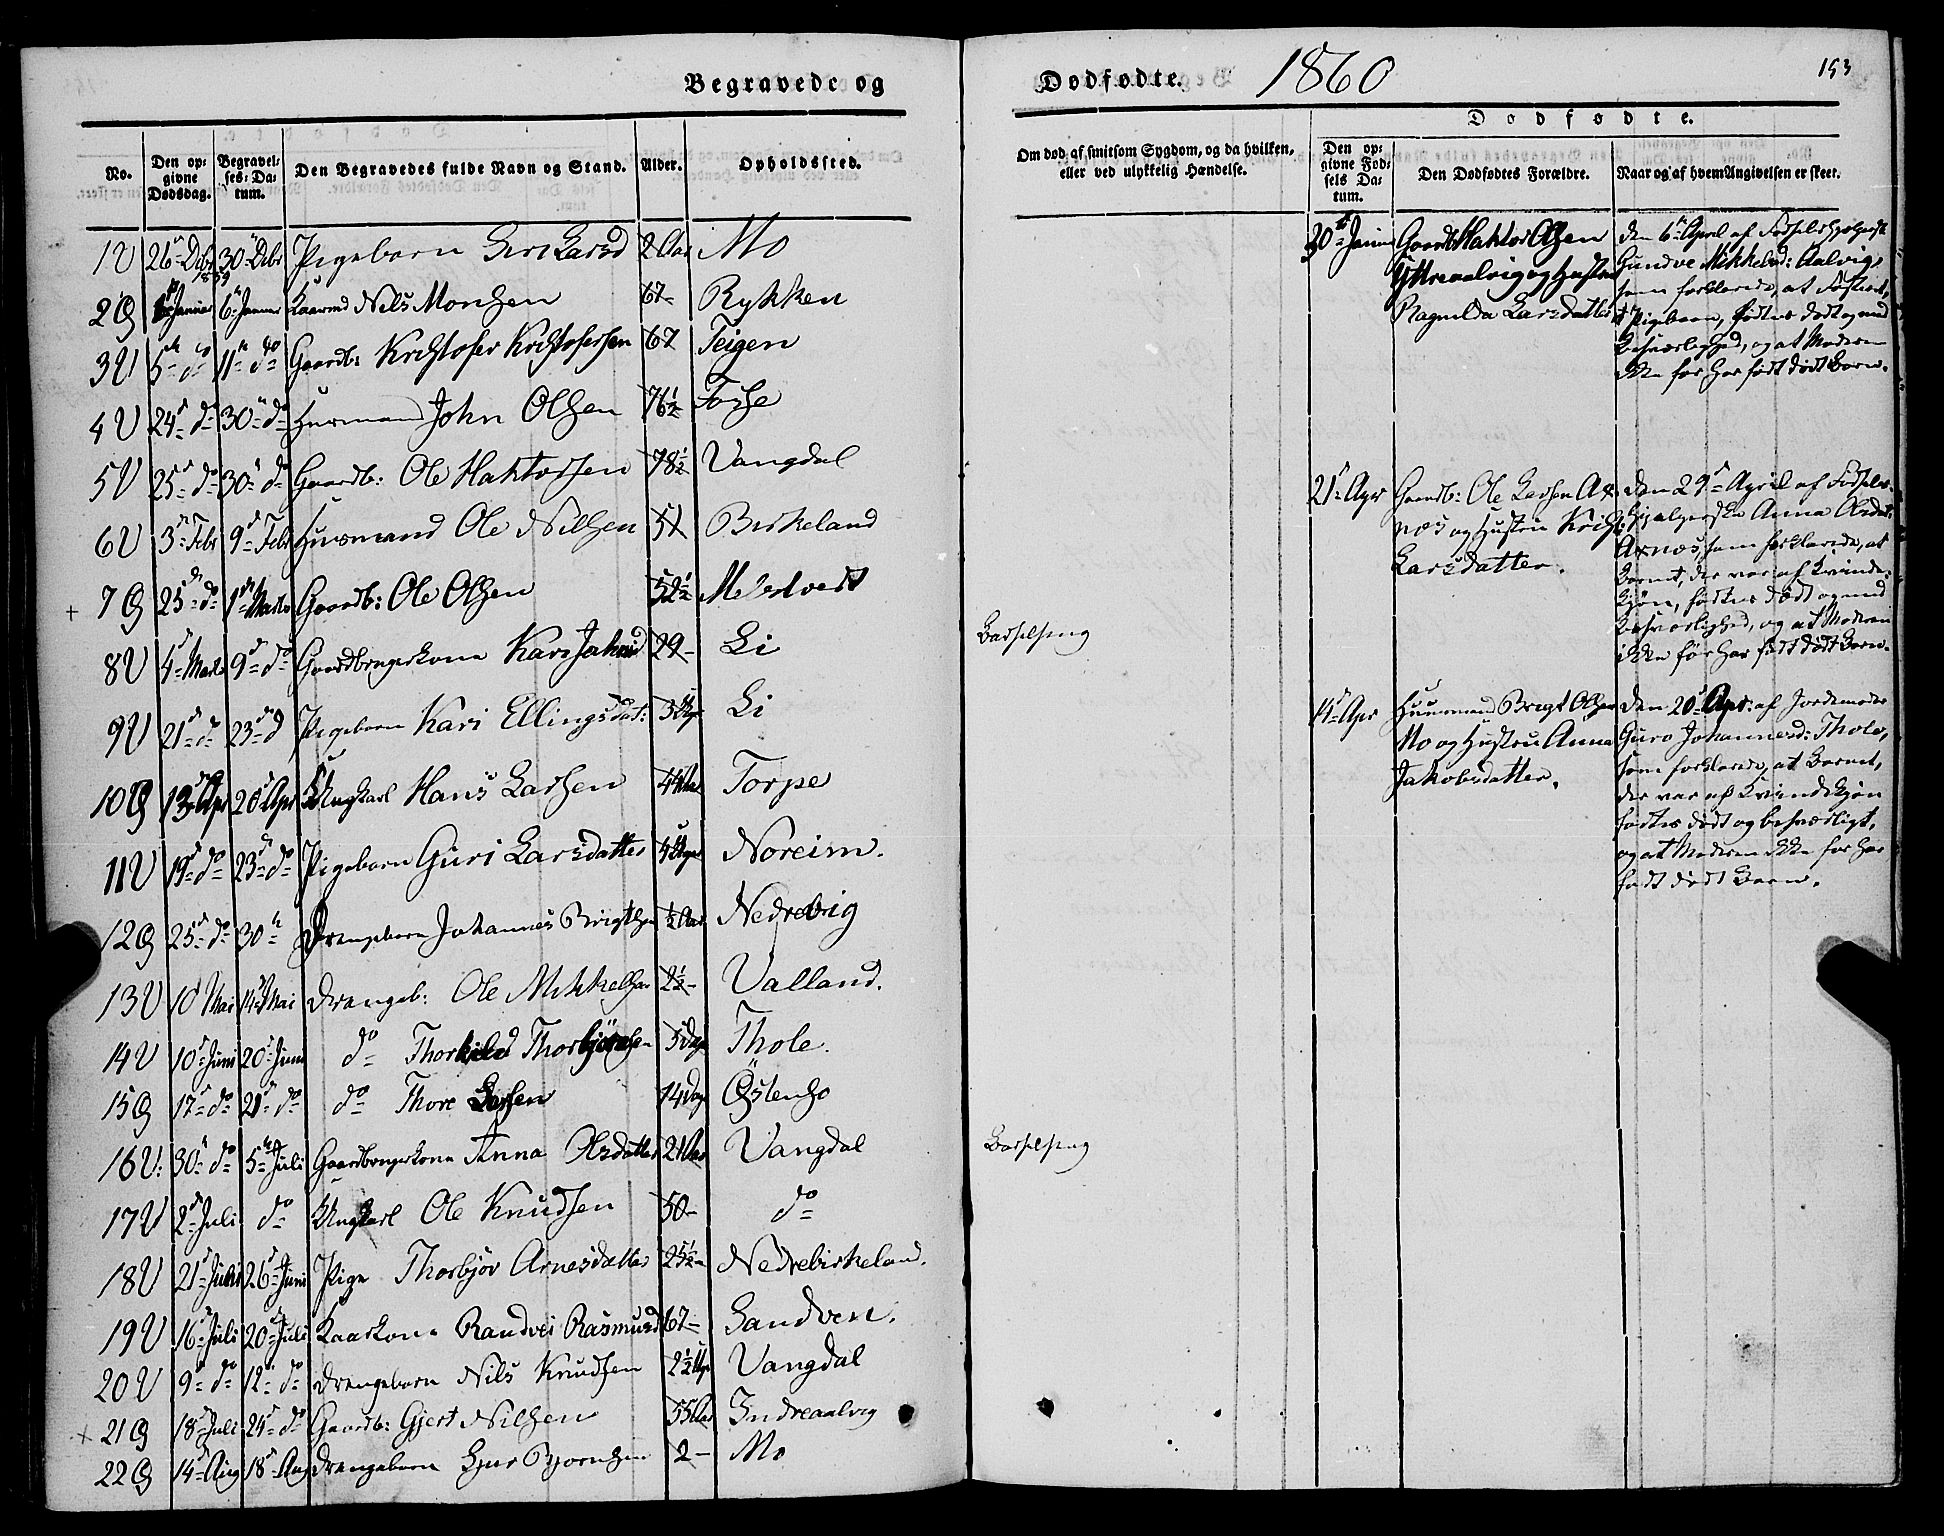 Begravede og
No. Den opgivne Dødsdag. Begravelses-Datum. Den Begravedes fulde Navn og Stand. Alder. Opholdssted.
1 V 26 Debr 1859 30 Debr Pigebarn Larsd 2 Aar Mo
2 Januar 6 Januar Kaarmd Nils Monsen 67 - Rykken
3 V 5 do 11 do Gaardb: Kristofer Kristofersen 67 Teigen
4 V 24 do 30 do Husmand John Olsen 76½ Torpe
5 V 25 do 30 do Gaardb: Ole Haktorsen 78½ Vangdal
6 V 3 Febr 9 Febr Husmand Ole Nilsen 51 Birkeland
+ 7 25 do 1 Marts Gaardb: Ole Olsen 52½ Melstveit
8 V 4 Marts 9 do Gaardbrugerkone Kari Jakobsd 29 - Li
9 V 21 do 23 d Pigebarn Kari Ellingsdat: 3 Li
10 13 Apr 20 Apr Ungkarl Hans Larsen 44 Aar Torpe
11 V 19 do 23 do Pigebarn Guri Larsdatter 4 Noreim.
12 25 do 30 Drengebarn Johannes Brigtsen ½ Aar Nedrevig
13 V 10 Mai 14 Mai Drengeb: Ole Mikkelsen 2½ - Valland.
14 V 10 Juni 20 Juni do Thorkild Thorbjørnsen 5 Dage Thole.
15 17 do 21 do do Thore Larsen 14 Dage Østensø
16 V: 30 do 5 Juli Gaardbrugerkone Anna Olsdatter 21 Aar Vangdal
17 V 2 Juli do Ungkarl Ole Knudsen 50 - do
18 V 21 Juni 26 Juni Pige Thorbjør Arnesdatter 25½ - Nedrebirkeland.
19 V 16 Juli 20 Juli Kaarkone Randvei Rasmusd 67 - Sandven.
20 V 9 do 12 do Drengebarn Nils Knudsen 2½ Vangdal
+ 21 18 Juli 24 do Gaardb: Gjert Nilsen 55 Aar Indreaalvig
22 14 Aug 18 Aug Drengebarn Sjur Bjørnsen 2 - Mo
Dødfødte. 1860 153
Dødfødte.
Om død af smitsom Sygdom, og da hvilken, eller ved ulykkelig Hændelse. Den opgivne Fødsels Datum. Den Dødfødtes Forældre. Naar og af hvem Angivelsen er skeet.
Barselseng
Barselseng
30 Januar Gaardb: Haktor Olsen
Yttreaalvig og Hustru
Ragnilda Larsdatter
Den 6 April af Fødselshjelperske
Gundve Mikkelsd: Aalvig,
som forklarede, at Fosteret,
et Pigebarn, fødtes dødt og med
Besværlighed, og at Moderen
ikke før har født dødt Barn.
21 Apr Gaardb: Ole Larsen Ax-
næs og Hustru Krist:
Larsdatter.
Den 29 April af Fødsels-
hjelperske Anna Olsdat:
Axnæs, som forklarede, at
Barnet, der var af Kvinde-
kjøn, fødtes dødt og med
Besværlighed, og at Moderen
ikke før har født dødt Barn.
4 Apr Huusmand Brigt Olsen
Mo og Hustru Anna
Jakobsdatter.
Den 20 Apr: af Jordemoder
Guro Johannesd: Thole,
som forklarede, at Barnet,
der var af Kvindekjøn
fødtes dødt og besværligt,
og at Moderen ikke før har
født dødt Barn.